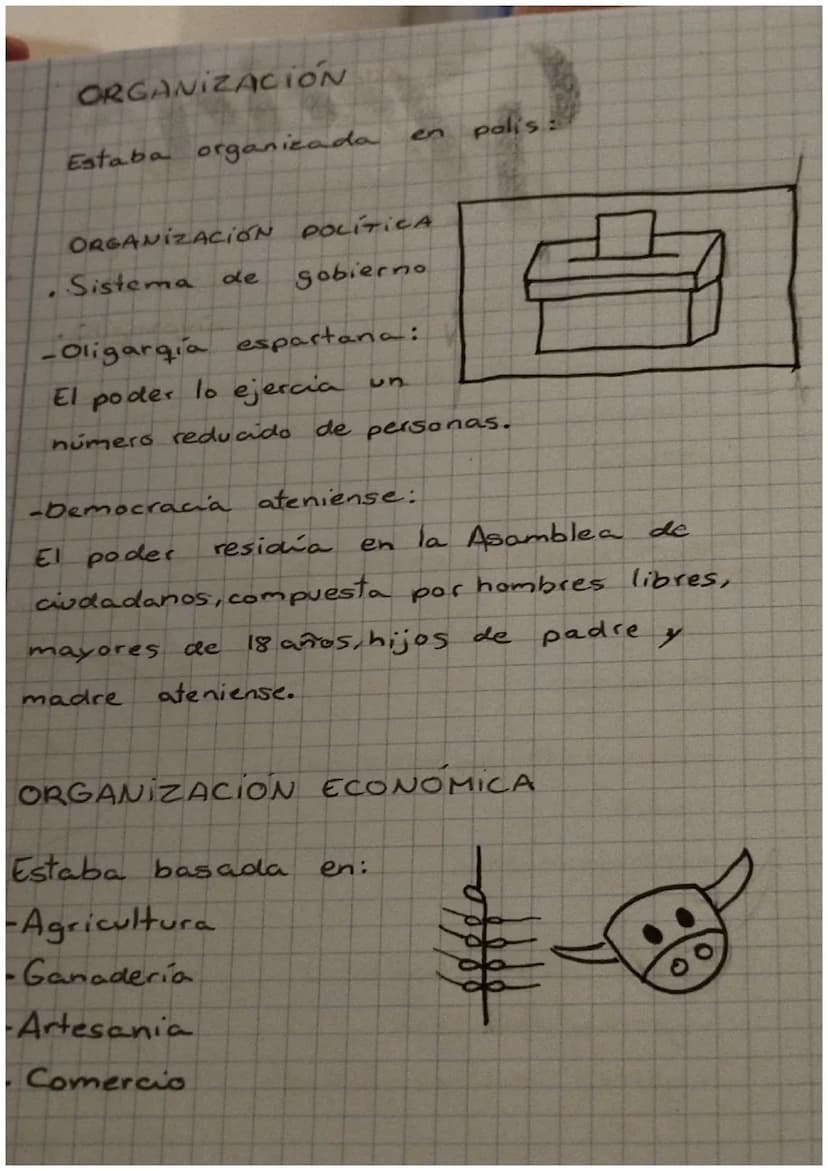 ORGANIZACIÓN
Estaba organizada en polis:
ORGANIZACIÓN POLÍTICA
. Sistema de gobierno
-Oligarqía espartana:
El poder lo ejercia un
número reducido de personas.
-Democracia ateniense:
El poder residía en la Asamblea de
ciudadanos, compuesta por hombres libres,
mayores de 18 años, hijos de padre y
madre ateniense.
ORGANIZACIÓN ECONÓMICA
Estaba basada en:
-Agricultura
-Ganadería
-Artesania
. Comercio